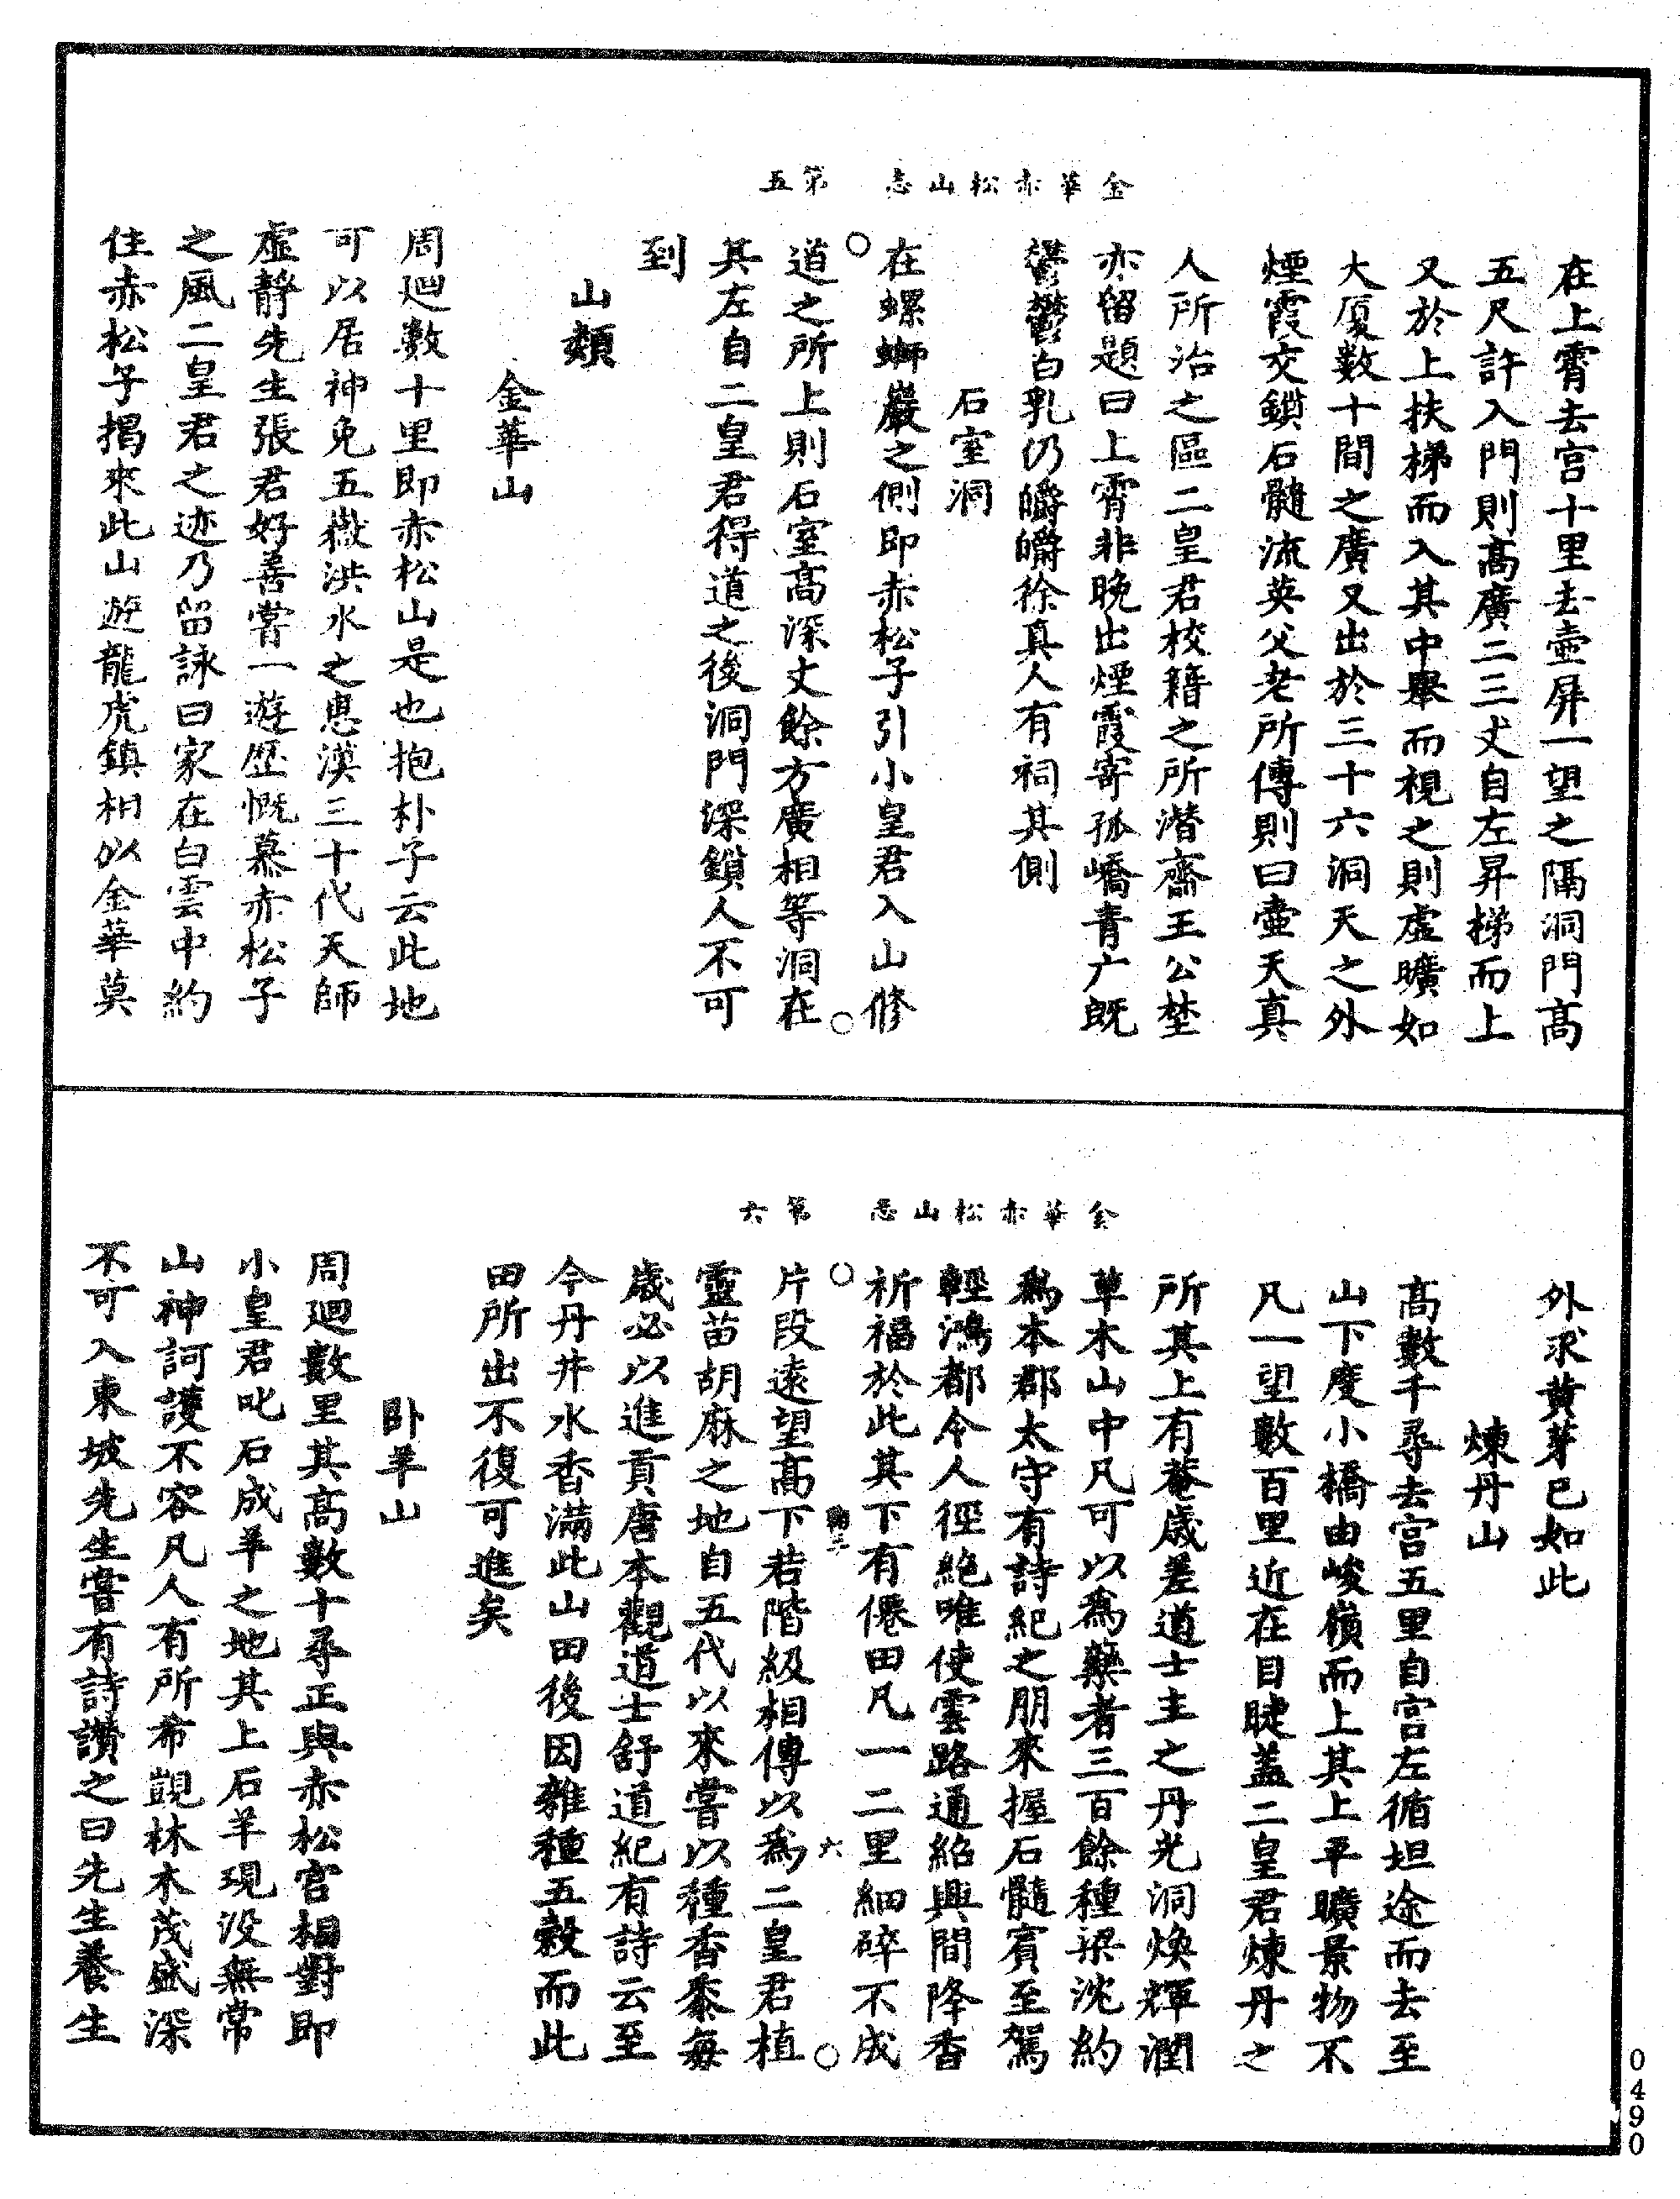 金華赤松山志　第五
在上霄去宫十里去壷屏一望之隔洞門髙
五尺許入門則髙廣二三丈自左昇梯而上
又於上扶梯而入其中舉而視之則虚曠如
大厦數十間之廣又出於三十六洞天之外
煙霞交鎖石髓流英父老所傳則曰壷天真
人所治之區二皇君校籍之所潜齋王公埜
亦留題曰上霄非晚出煙霞寄孤嶠青广既
鬱鬱白乳仍皭皭徐真人有祠其側
石室洞
在螺螄巖之側即赤松子引小皇君入山修
道之所上則石室髙深丈餘方廣相等洞在
其左自二皇君得道之後洞門深鎖人不可
到
山類
金華山
周廻數十里即赤松山是也抱朴子云此地
可以居神免五𡻕洪水之患漢三十代天師
虚靜先生張君好善嘗一遊歴慨慕赤松子
之風二皇君之迹乃留詠曰家在白雲中約
住赤松子揭來此山遊龍虎鎮相似金華莫
金華赤松山志　第六
外求黄芽已如此
煉丹山
髙數千尋去宫五里自宫左循坦途而去至
山下度小橋由峻嶺而上其上平曠景物不
凡一望數百里近在目睫蓋二皇君煉丹之
所其上有菴歳差道士主之丹光洞煥輝潤
草木山中凡可以爲藥者三百餘種梁沈約
爲本郡太守有詩紀之朋來握石髓賓至駕
輕鴻都令人徑絶唯使雲路通紹興間降香
祈福於此其下有僊田凡一二里細碎不成
片段逺望髙下若階級相傳以爲二皇君植
靈苗胡麻之地自五代以來嘗以種香黍每
歳必以進貢唐本觀道士舒道紀有詩云至
今丹井水香滿此山田後因雜種五穀而此
田所出不復可進矣
卧羊山
周廻數里其髙數十尋正與赤松宫相對即
小皇君叱石成羊之地其上石羊現没無常
山神訶護不容凡人有所希覬林木茂盛深
不可入東坡先生嘗有詩讃之曰先生養生
六
0490